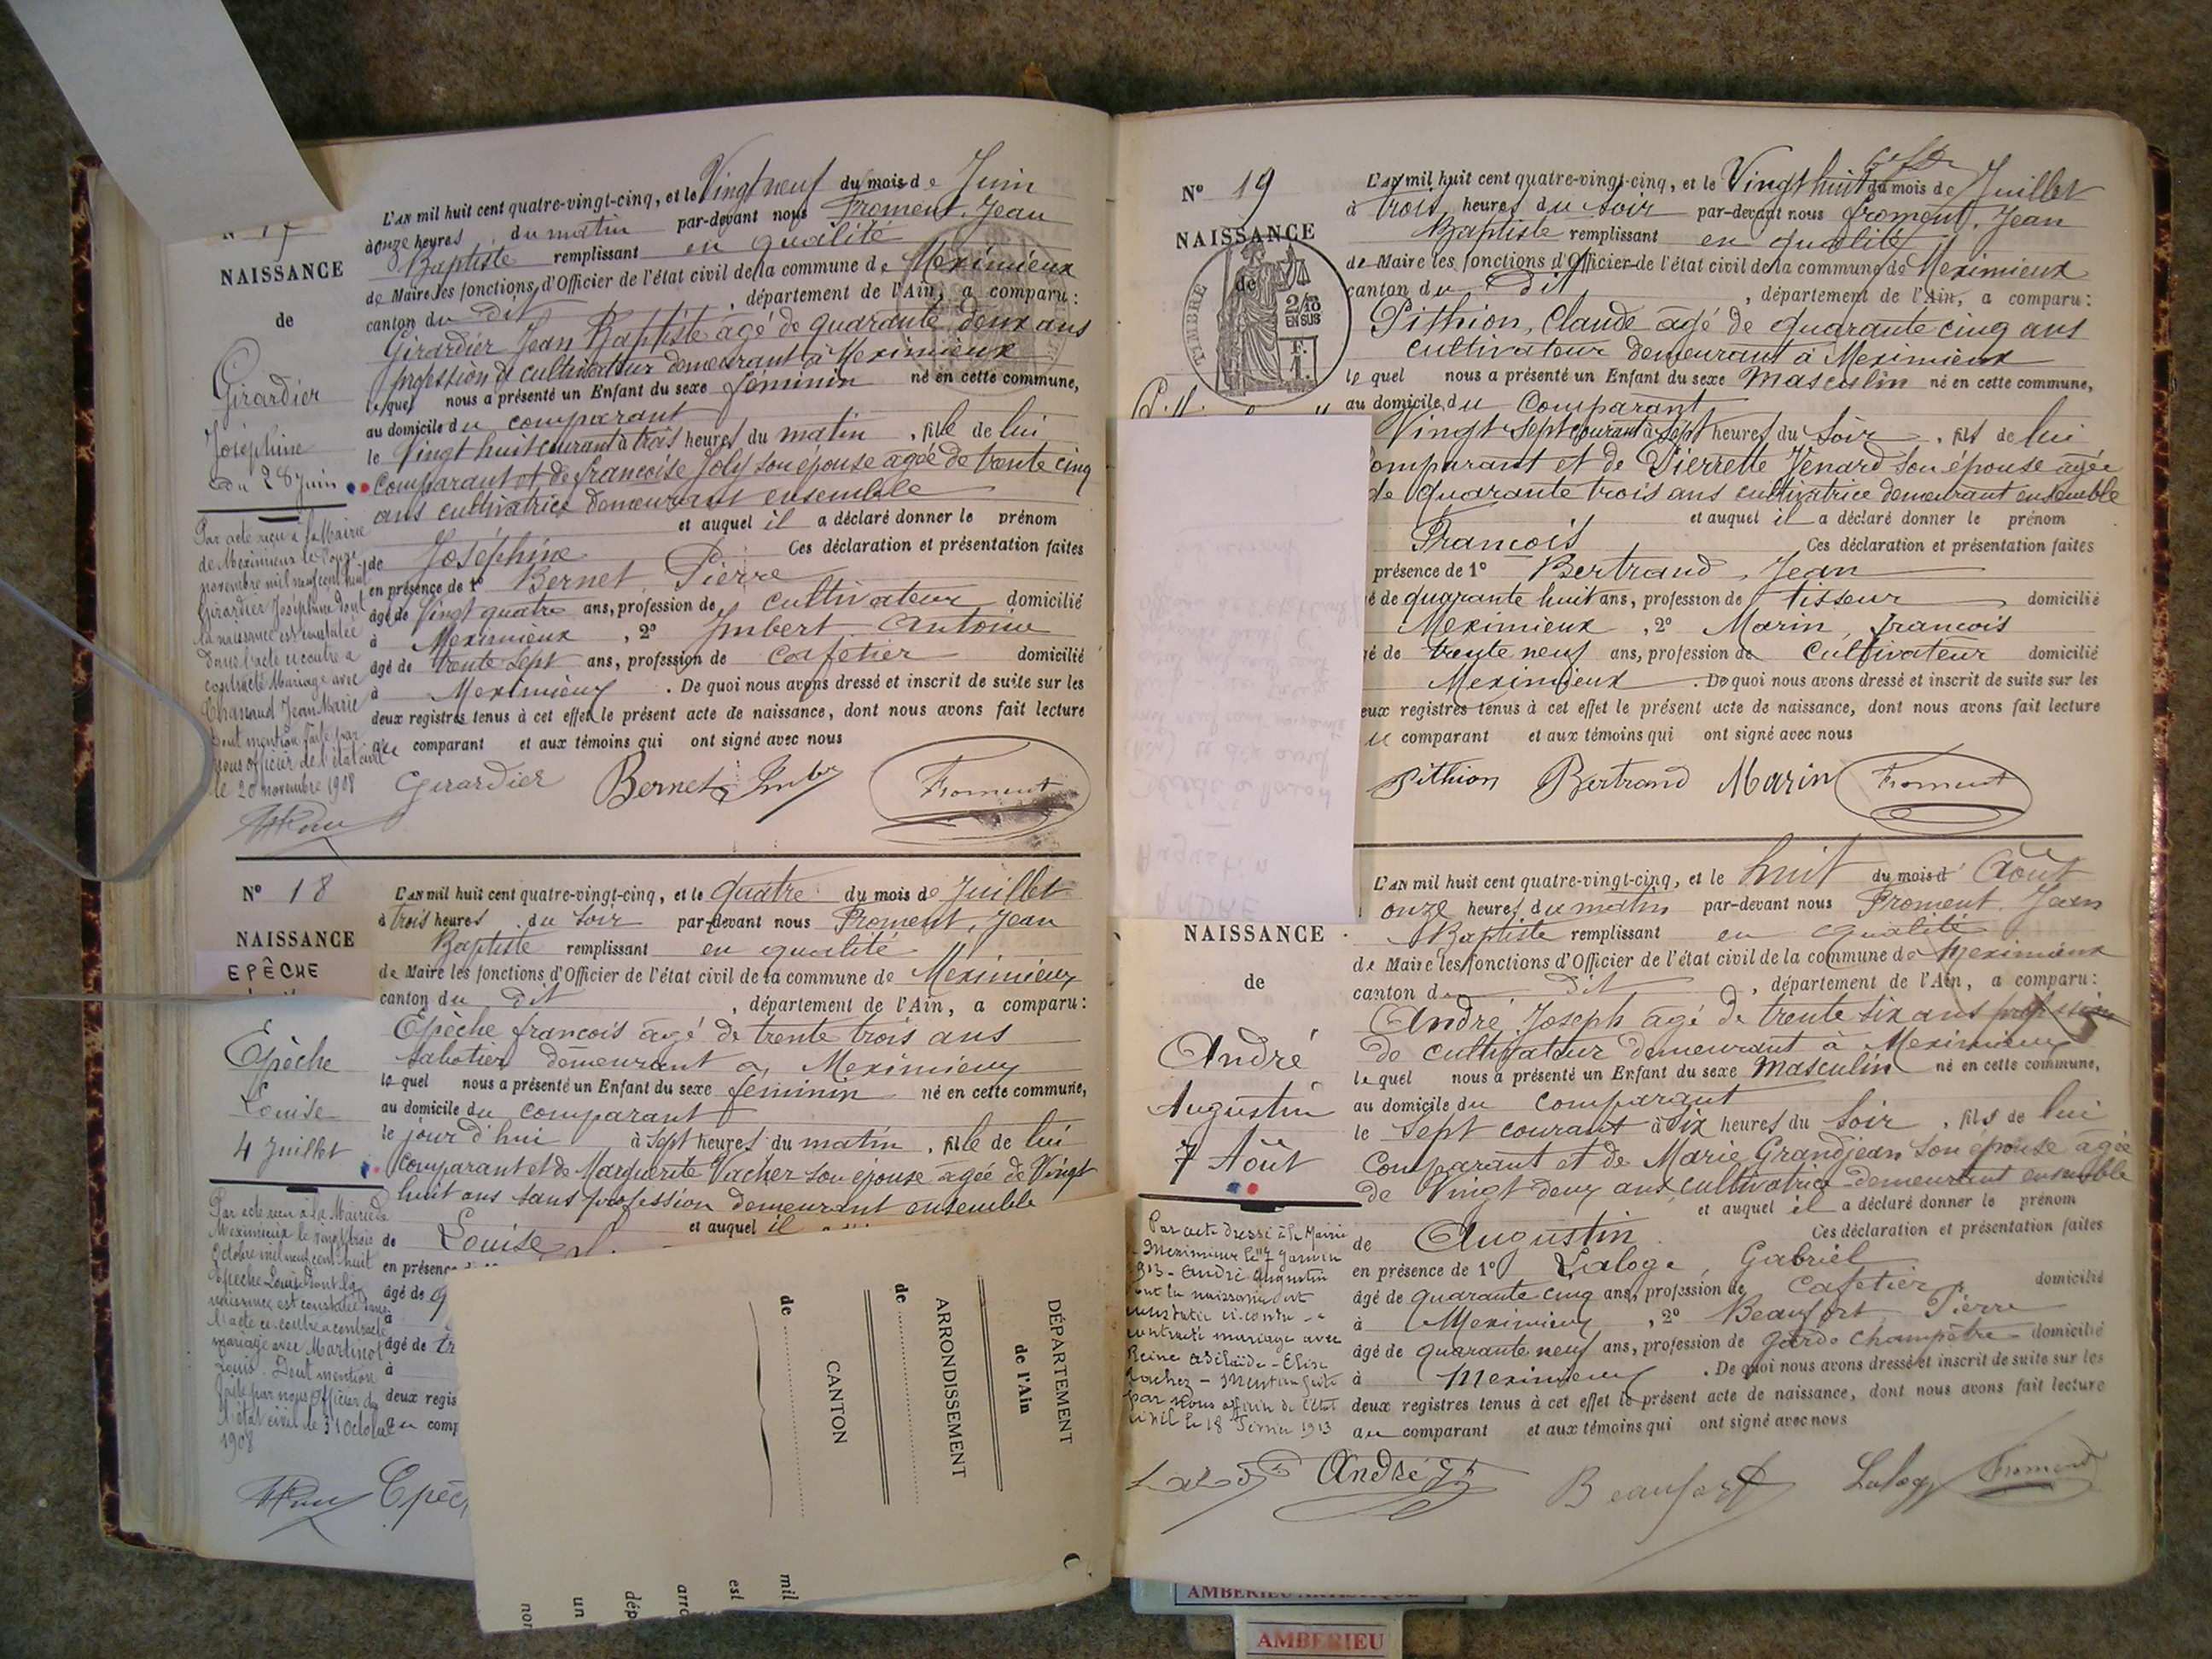 NAISSANCE
de
Girardier
Joséphine
du 28 Juin
L'AN mil huit cent quatre-vingt-cinq, et le Vingt neuf du mois de Juin
à onze heures du matin par-devant nous Froment, Jean
Baptiste remplissant en qualité
de Maire les fonctions d'Officier de l'état civil de la commune de Meximieux
canton du Dit, département de l'Ain, a comparu:
Girardier Jean Baptiste agé de quarante deux ans
profession de cultivateur demeurant à Meximieux
lequel nous a présenté un Enfant du sexe féminin né en cette commune,
au domicile du comparant
le Vingt huit courant à trois heures du matin, fille de lui
comparant et de francoise Joly son épouse agée de trente cinq
ans cultivatrice demeurant ensemble
et auquel il a déclaré donner le prénom
de Joséphine Ces déclaration et présentation faites
en présence de 1° Bernet, Pierre
âgé de Vingt quatre ans, profession de cultivateur domicilié
à Meximieux, 2° Imbert Antoine
âgé de trente sept ans, profession de cafetier domicilié
à Meximieux. De quoi nous avons dressé et inscrit de suite sur les
deux registres tenus à cet effet le présent acte de naissance, dont nous avons fait lecture
au comparant et aux témoins qui ont signé avec nous
Girardier Bernet Froment
Par acte reçu à la Mairie
de Meximieux le onze
novembre mil neuf cent huit
Girardier Joséphine dont
la naissance est constatée
dans l'acte ci contre a
contracté Mariage avec
Chanaud Jean Marie
Dont mention faite par
nous officier de l'état civil
le 20 novembre 1908
N° 18
NAISSANCE
EPÊCHE
Epêche
Louise
4 Juillet
L'AN mil huit cent quatre-vingt-cinq, et le quatre du mois de Juillet
à trois heures du soir par-devant nous Froment, Jean
Baptiste remplissant en qualité
de Maire les fonctions d'Officier de l'état civil de la commune de Meximieux
canton du Dit, département de l'Ain, a comparu:
Epêche francois âgé de trente trois ans
sabotier demeurant à Meximieux
lequel nous a présenté un Enfant du sexe féminin né en cette commune,
au domicile du comparant
le jour d'hui à sept heures du matin, fille de lui
comparant et de Marguerite Vacher son épouse agée de Vingt
huit ans sans profession demeurant ensemble
et auquel il
de Louise
en présence
âgé de
âgé de
à
deux regis
au comp
Par acte reçu à la Mairie de
Meximieux le vingt trois
Octobre mil neuf cent huit
Epeche Louise dont la
naissance est constatée dans
l'acte ci-contre a contracté
mariage avec Martinot
Louis. Dont mention
faite par nous Officier de
l'état civil le 31 Octobre
1908
DÉPARTEMENT
de l'Ain
ARRONDISSEMENT
de
CANTON
de
mil
est
arro
dép
un
nor
N° 19
NAISSANCE
de
TIMBRE
2/10
EN SUS
L'AN mil huit cent quatre-vingt-cinq, et le Vingt huit du mois de Juillet
à trois heures du soir par-devant nous froment, Jean
Baptiste remplissant en qualité
de Maire les fonctions d'Officier de l'état civil de la commune de Meximieux
canton du Dit, département de l'Ain, a comparu:
Pithion, Claude agé de quarante cinq ans
cultivateur demeurant à Meximieux
lequel nous a présenté un Enfant du sexe Masculin né en cette commune,
au domicile du Comparant
Vingt sept courant à sept heures du soir, fils de lui
Comparant et de Pierrette Venard son épouse agée
de quarante trois ans cultivatrice demeurant ensemble
et auquel il a déclaré donner le prénom
Francois Ces déclaration et présentation faites
présence de 1° Bertrand, Jean
é de quarante huit ans, profession de tisseur domicilié
Meximieux, 2° Marin, francois
gé de trente neuf ans, profession de Cultivateur domicilié
Meximieux. De quoi nous avons dressé et inscrit de suite sur les
eux registres tenus à cet effet le présent acte de naissance, dont nous avons fait lecture
comparant et aux témoins qui ont signé avec nous
Pithion Bertrand Marin Froment
NAISSANCE
de
André
Augustin
7 Août
L'AN mil huit cent quatre-vingt-cinq, et le huit du mois d' Août
onze heures du matin par-devant nous Froment, Jean
Baptiste remplissant en qualité
de Maire les fonctions d'Officier de l'état civil de la commune de Meximieux
canton d Dit, département de l'Ain, a comparu:
André Joseph agé de trente six ans profession
de cultivateur demeurant à Meximieux
lequel nous a présenté un Enfant du sexe Masculin né en cette commune,
au domicile du comparant
le sept courant à six heures du soir, fils de lui
Comparant et de Marie Grandjean son épouse agée
de Vingt deux ans cultivatrice demeurant ensemble
et auquel il a déclaré donner le prénom
de Augustin Ces déclaration et présentation faites
en présence de 1° Laloge, Gabriel
âgé de quarante cinq ans, profession de Cafetier domicilié
à Meximieux, 2° Beaufort Pierre
âgé de quarante neuf ans, profession de garde champêtre domicilié
à Meximieux. De quoi nous avons dressé et inscrit de suite sur les
deux registres tenus à cet effet le présent acte de naissance, dont nous avons fait lecture
au comparant et aux témoins qui ont signé avec nous
André Beaufort Laloge Froment
Par acte dressé à la Mairie
Meximieux le 7 Janvier
1913 - André Augustin
dont la naissance est
constatée ci-contre - a
contracté mariage avec
Reine Adélaïde - Elise
- Mention faite
par Nous officier de l'état
civil le 18 Février 1913
AMBERIEU